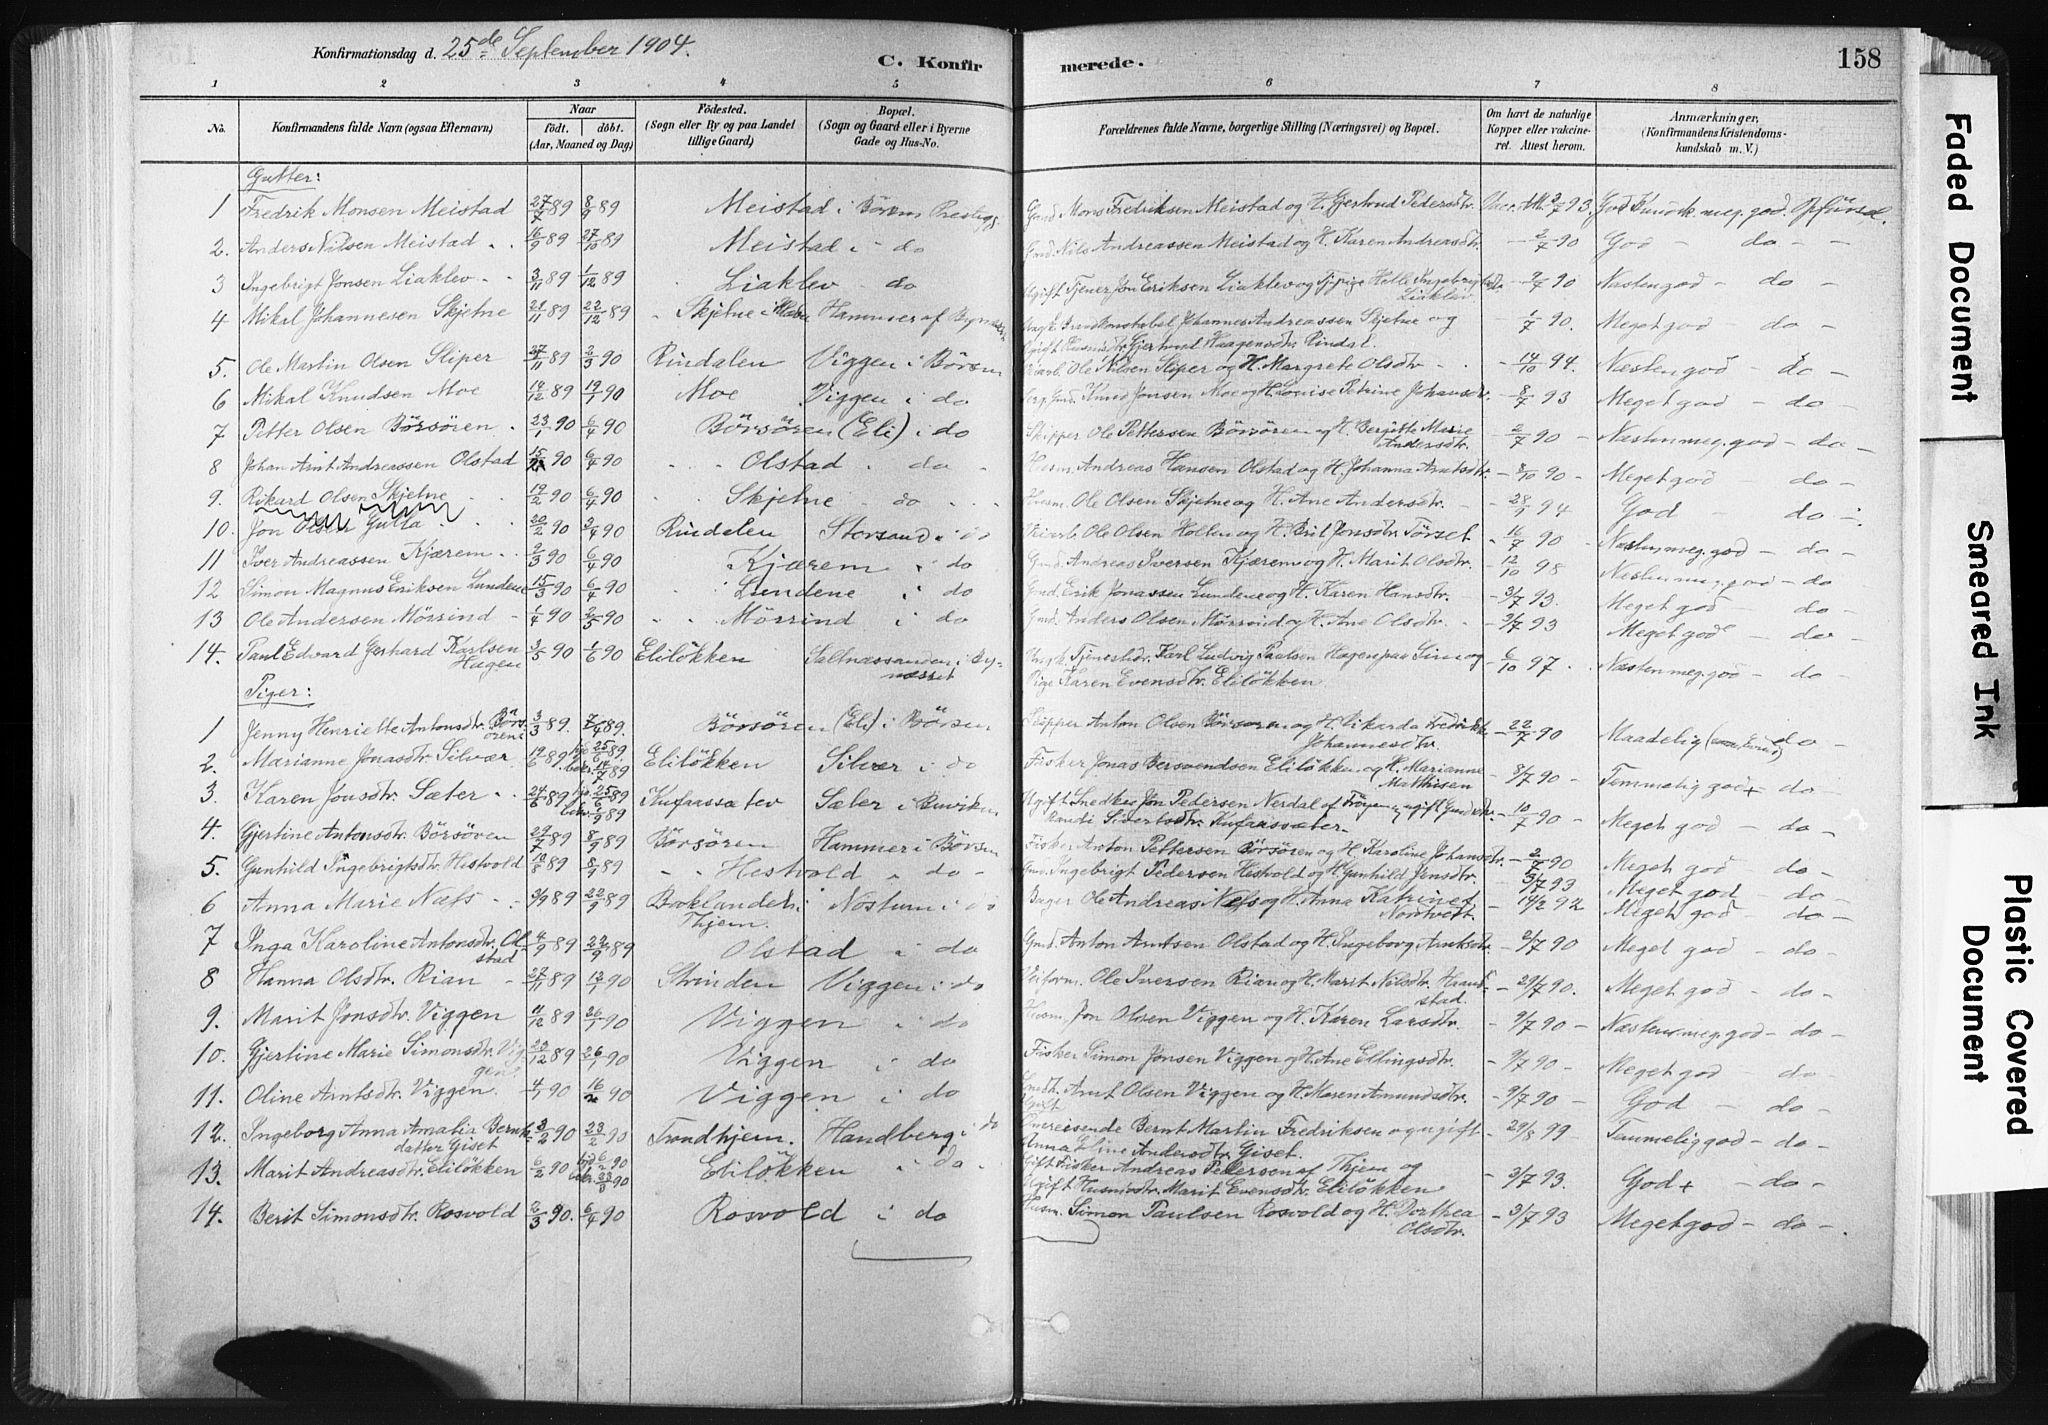 Konfirmationsdag d. 25de September 1904.
C. Konfir
merede.
158
1 2 3 4 5 6 7 8
No.
Konfirmandens fulde Navn (ogsaa Efternavn)
Naar
födt. döbt.
(Aar, Maaned og Dag)
Födested.
(Sogn eller By og paa Landet
tillige Gaard)
Bopæl.
(Sogn og Gaard eller i Byerne
Gade og Hus-No.
Forældrenes fulde Navne, borgerlige Stilling (Næringsvei) og Bopæl.
Om havt de naturlige
Kopper eller vakcine-
ret. Attest herom.
Anmærkninger,
(Konfirmandens Kristendoms-
kundskab m. V.)
Gutter:
1 Fredrik Monsen Meistad 27/7 89 8/9 89 Meistad i Börsens Gmd. Mons Fredriksen Meistad og H. Gjertrud Pedersdtr.
2. Anders Nilsen Meistad 16/9 89 27/10 89 Meistad i do Gmd. Nils Andreassen Meistad og H. Karen Andreasdtr. - 2/7 90 God - do -
3 Ingebrigt Jonsen Liaklev 3/11 89 1/12 89 Liaklev - do Tjener Jon Eriksen Liaklev og
Liaklev 90 Næsten god - do -
4 Mikal Johannesen Skjetne 21/11 89 22/12 89 Skjetne i Hammer af Johannes Andreassen Skjetne og
Gjertrud Haagensdtr. Rindal. 1/7 90. Meget god - do -
5. Ole Martin Olsen Sliper 27/11 89 2/3 90 Rindalen Viggen i Börsen Ole Nilsen Sliper og H. Margrete Olsdtr. - 14/10 94. Næsten god - do -
6 Mikal Knudsen Moe 14/12 89 19/1 90 Moe Viggen i do Gmd. Knud Jonsen Moe og H. Louise Petrine Johansdr. - 8/7 93 Meget god - do -
7 Petter Olsen Börsören 23/1 90 6/4 90 Börsören (Eli) i do Skipper Ole Pettersen Börsören og H. Bergitte Marie
Andersdtr. - 2/7 90 - Næsten meg. god - do -
8 Johan Arnt Andreassen Olstad 15/2 90 6/4 90 Olstad do Husm. Andreas Hansen Olstad og H. Johanna Arntsdtr. - 8/10 90 - Meget god - do -
9. Rikard Olsen Skjetne 19/2 90 6/4 90 Skjetne do Husm. Ole Olsen Skjetne og H. Ane Andersdtr. - 94 God - do -
10. Jon Olsen Gulla 20/2 90 3/4 90 Rindalen Storsand i do Ole Olsen Holten og H. Brit Jonsdtr. Törset - 16/7 90 - Næsten meg. god - do -
11 Iver Andreassen Kjærem 2/3 90 6/4 90 Kjærem i do Gmd. Andreas Iversen Kjærem og H. Marit Olsdtr. - 12/10 98 Næsten meg. god - do
12 Simon Magnus Eriksen Lundene 15/3 90 6/4 90 Lundene i do Gmd. Erik Jonassen Lundene og H. Karen Hansdtr. - 3/7 93. Meget god - do -
13 Ole Andersen Mörrind 1/4 90 2/5 90 Mörrind i do Gmd. Anders Olsen og H. Ane Olsdtr. - 3/7 93 Meget god - do -
14. Paul Edvard Gerhard Karlsen
Hagen 3/5 90 1/6 90 Elilökken Saltnæssanden i By-
næsset Karl Ludvig Paulsen Hagen paa og
Pige Karen Evensdtr. Elilökken. - 6/10 97. Næsten meg. god - do -
Piger:
1 Jenny Henriette Antonsdtr. Börs-
ören 3/3 89. 7/4 89. Börsören (Eli) i Börsen Skipper Anton Olsen Börsören og H. Rikarda Fredrikke
Johannesdtr. - 22/7 90 Maadelig do -
2. Marianne Jonasdtr. Silvær 19/6 89 25/6 89. 14/7 89 Elilökken Silvær i do Fisker Jonas Bersvendsen Elilökken og H. Marianne
Matthisen - 8/7 90 - Temmelig god + do -
3. Karen Jonsdtr. Sæter 24/6 89 25/6 89 Kufaassæter Sæter i Buviken Ugift Snedker Jon Pedersen Nerdal af
Randi Sivertsdtr. Kufaassæter. - 10/7 90 - Meget god - do -
4. Gjertine Antonsdtr. Börsören 29/7 89 8/9 89 Börsören Hammer i Börsen Fisker Anton Pettersen Börsören og H. Karoline Johansdtr. - 2/7 90 Meget god - do -
5. Gunhild Ingebrigtsdtr. Hestvold 10/8 89 8/9 89 Hestvold i do - Gmd. Ingebrigt Pedersen Hestvold og H. Gunhild Jensdtr. 3/7 93 Meget god - do -
6 Anna Marie Næss 3/9 89 22/9 89 Baklandet i
Thjem. i do Bager Ole Andreas Næss og H. Anna Katrine
Nordtvedt. - 14/2 92 Meget god - do -
7 Inga Karoline Antonsdtr. Ol-
stad 4/9 89 22/9 89 Olstad i do Gmd. Anton Arntsen Olstad og H. Ingeborg Arntsdtr. - 2/7 90 Meget god - do -
8 Hanna Olsdtr. Rian 27/11 89 90 Strinden Viggen i do Ole Iversen Rian og H. Marit Nilsdtr.
stad. - 29/7 90. Meget god - do -
9. Marit Jonsdtr. Viggen 11/12 89 26/1 90 Viggen i do Husm. Jon Olsen Viggen og H. Karen Larsdtr. - 9/7 90 - Næsten meg. god - do -
10. Gjertine Marie Simonsdtr. Vig-
gen. 23/12 89 26/1 90 Viggen i do Fisker Simon Jonsen Viggen og H. Ane Ellingsdtr. - 9/7 90 - Meget god - do -
11. Oline Arntsdtr. Viggen 4/1 90 16/2 90 Viggen i do Arnt Olsen Viggen og H. Maren Amundsdtr. - 9/7 90 - God - do -
12. Ingeborg Anna Amalia Bernt-
datter Giset 3/2 90 23/2 90 Trondhjem. Handberg i do Bernt Martin Fredriksen og ugift
Anna Eline Andersdtr. Giset. - 29/8 99 - Temmelig god - do -
13. Marit Andreasdtr. Elilökken 6/2 90 6/2 90 23/3 90 Elilökken i do Fisker Andreas Pedersen af Thjem og
Ugift Marit Evensdtr. Elilökken - 3/7 93. God + - do -
14. Berit Simonsdtr. Rosvold 2/3 90. 6/4 90 Rosvold i do Husm. Simon Paulsen Rosvold og H. Dorthea
Olsdtr. - 3/7 93 Meget god - do -
Faded Document
Smeared Ink
Plastic Covered
Document